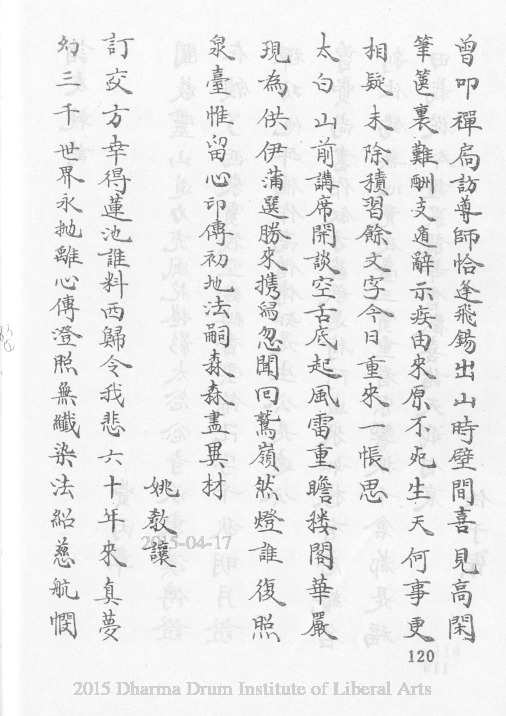 曾叩禪扃訪尊師恰逢飛錫出山時壁間喜見高閑
筆篋裏難酬支遁辭示疾由來原不死生天何事更
相疑未除積習餘文字今日重來一悵思
太白山前講席開談空舌底起風雷重瞻楼閣華嚴
現為供伊蒲選勝來携爲忽聞回鷲嶺然燈誰復照
泉臺惟留心印傳初地法嗣森森盡異材
姚教讓
訂交方幸得蓮池誰料西歸令我悲六十年來真夢
幻三千世界永抛離心傳澄照無纖染法紹慈航憫
120
2015-04-17
2015 Dharma Drum Institute of Liberal Arts